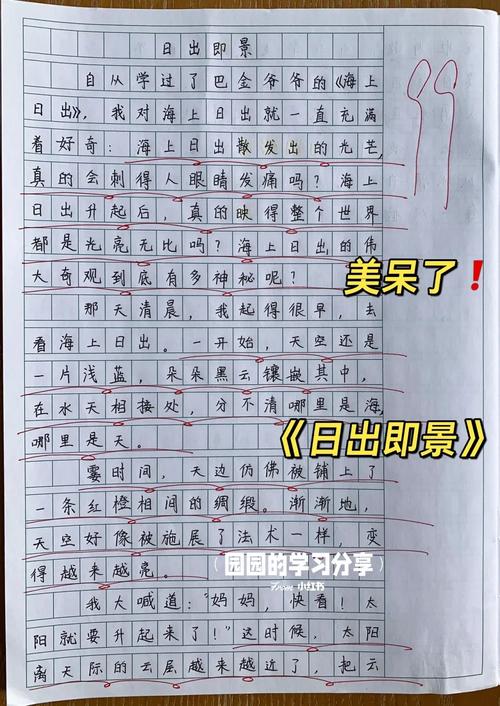 日出即景
自从学过了巴金爷爷的《海上
日出》，我对海上日出就一直充满
着好奇：海上日出散发出的光芒，
真的会刺得人眼睛发痛吗？海上
日出升起后，真的映得整个世界
都是光亮无比吗？海上日出的伟
大奇观到底有多神秘呢？
那天清晨，我起得很早，去
看海上日出。一开始，天空还是
一片浅蓝，朵朵黑云镶嵌其中，
在水天相接处，分不清哪里是海，
哪里是天。
霎时间，天边仿佛被铺上了
一条红橙相间的绸缎。渐渐地，
天空好像被施展了法术一样，变
得越来越亮。
我大喊道：“妈妈，快看！太
阳就要升起来了！”这时候，太阳
离天际的云层越来越近了，把云
99
美呆了！
《日出即景》
（园园的学习分享）
小红书